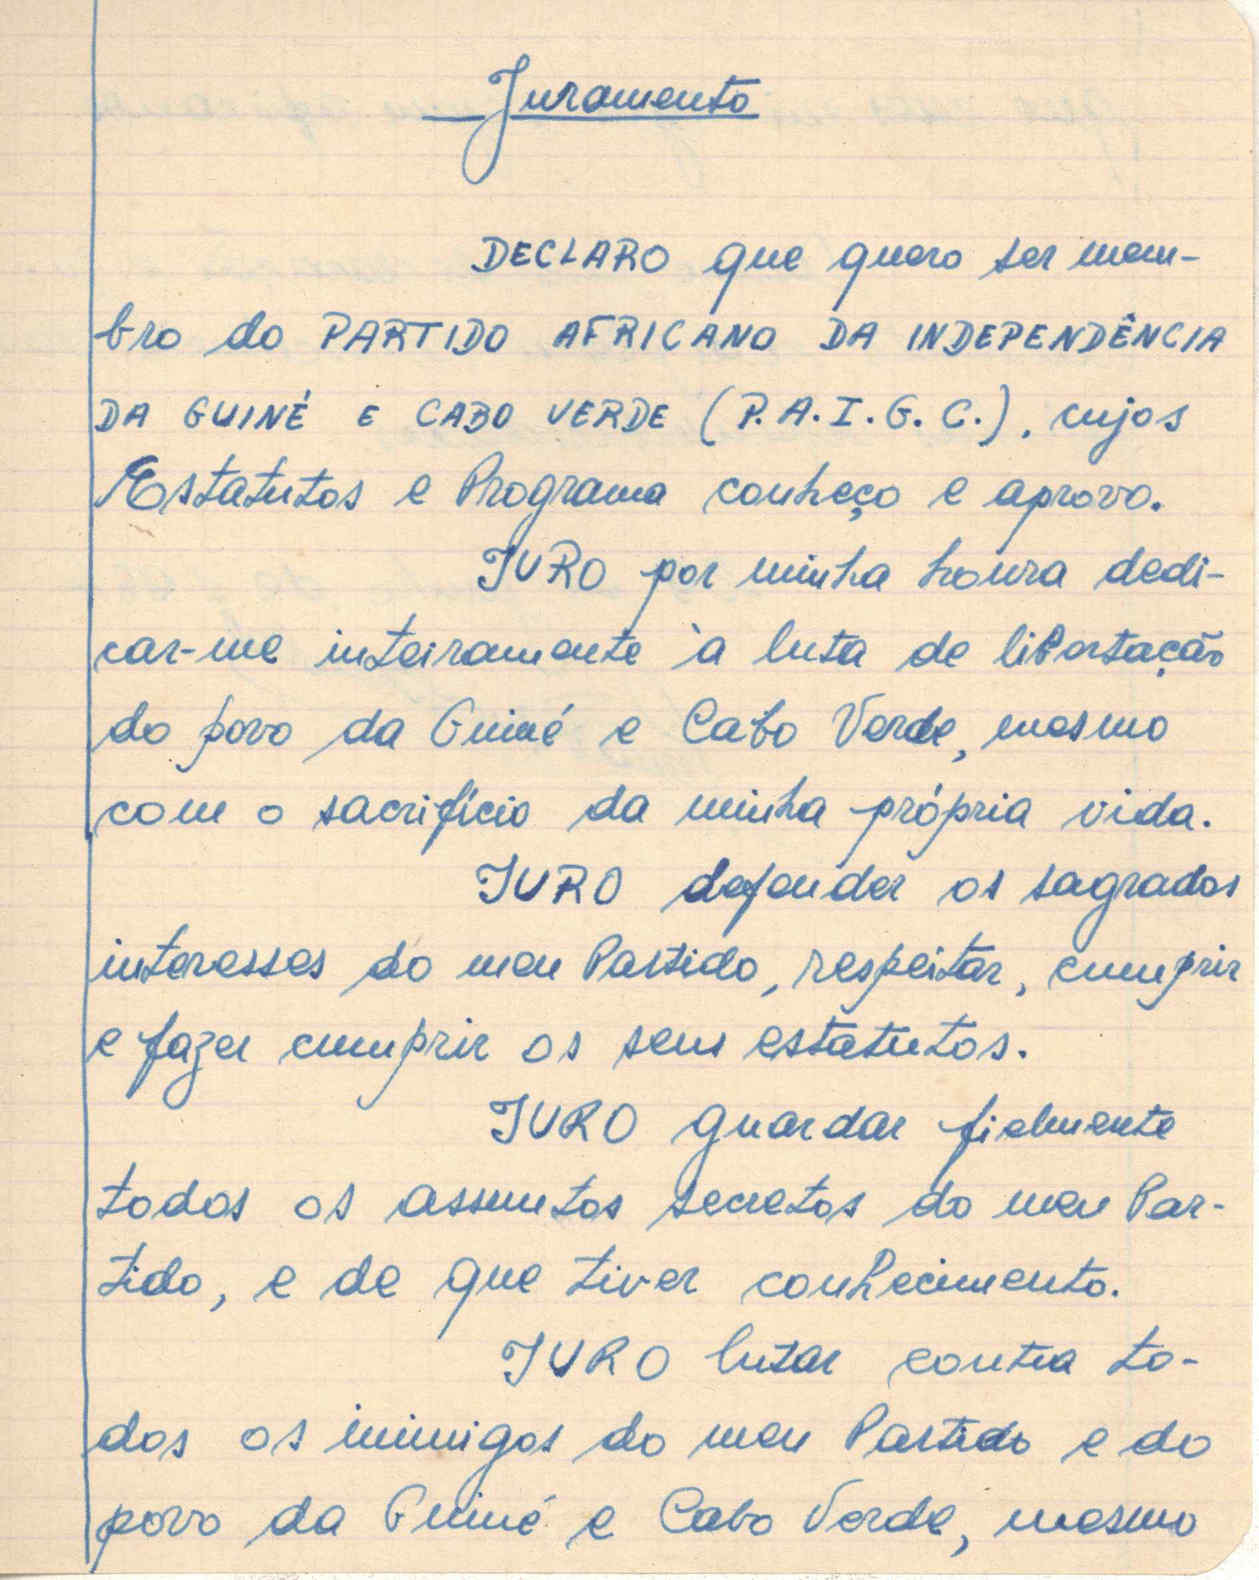 Juramento
DECLARO que quero ser mem-
bro do PARTIDO AFRICANO DA INDEPENDÊNCIA
DA GUINÉ E CABO VERDE (P.A.I.G.C.), cujos
Estatutos e Programa conheço e aprovo.
JURO por minha honra dedi-
car-me inteiramente à luta de libertação
do povo da Guiné e Cabo Verde, mesmo
com o sacrifício da minha própria vida.
JURO defender os sagrados
interesses do meu Partido, respeitar, cumprir
e fazer cumprir os seus estatutos.
JURO guardar fielmente
todos os assuntos secretos do meu Par-
tido, e de que tiver conhecimento.
JURO lutar contra to-
dos os inimigos do meu Partido e do
povo da Guiné e Cabo Verde, mesmo